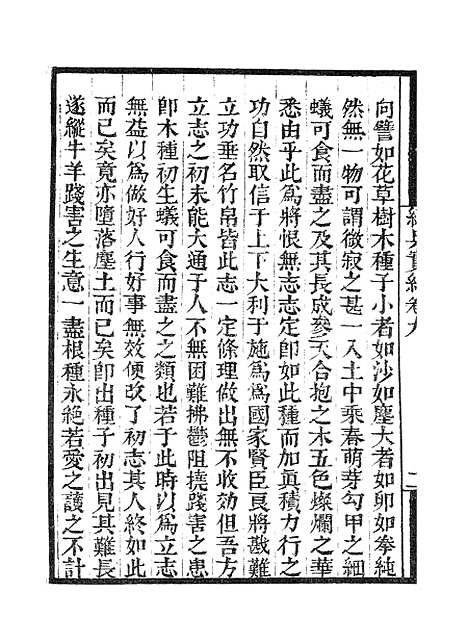 向譬如花草樹木種子小者如沙如塵大者如卵如拳純
然無一物可謂微寂之甚一入土中乘春萌芽勾甲之細
蟻可食而盡之及其長成參天合抱之木五色燦爛之華
悉由乎此爲將恨無志志定卽如此種而加眞積力行之
功自然取信于上下大利于施爲爲國家賢臣良將戡難
立功垂名竹帛皆此志一定條理做出無不收効但吾方
立志之初未能大通于人不無困難拂鬱阻撓踐害之患
卽木種初生蟻可食而盡之之類也若于此時以爲立志
無益以爲做好人行好事無效便改了初志其人終如此
而已矣竟亦墮落塵土而已矣卽出種子初出見其難長
遂縱牛羊踐害之生意一盡根種永絕若愛之護之不計
卷九
二